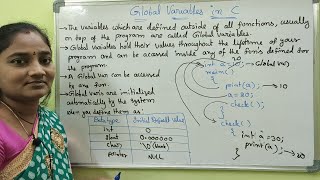 Global Variables in C
→ The variables which are defined outside of all functions, usually
on top of the program are called Global Variables.
→ Global Variables hold their values throughout the lifetime of your
program and can be accessed inside any of the funs defined for
the program.
→ A Global Var can be accessed
by any fun.
→ Global Vars are initialized
automatically by the system
when you define them as:
Datatype Initial Default value
int 0
float 0.000000
char \0 (blank)
pointer NULL
20
int a=10;
main()
{
print(a); → 10
a=20;
check();
}
check()
{
int a=30;
print(a); → 30
}